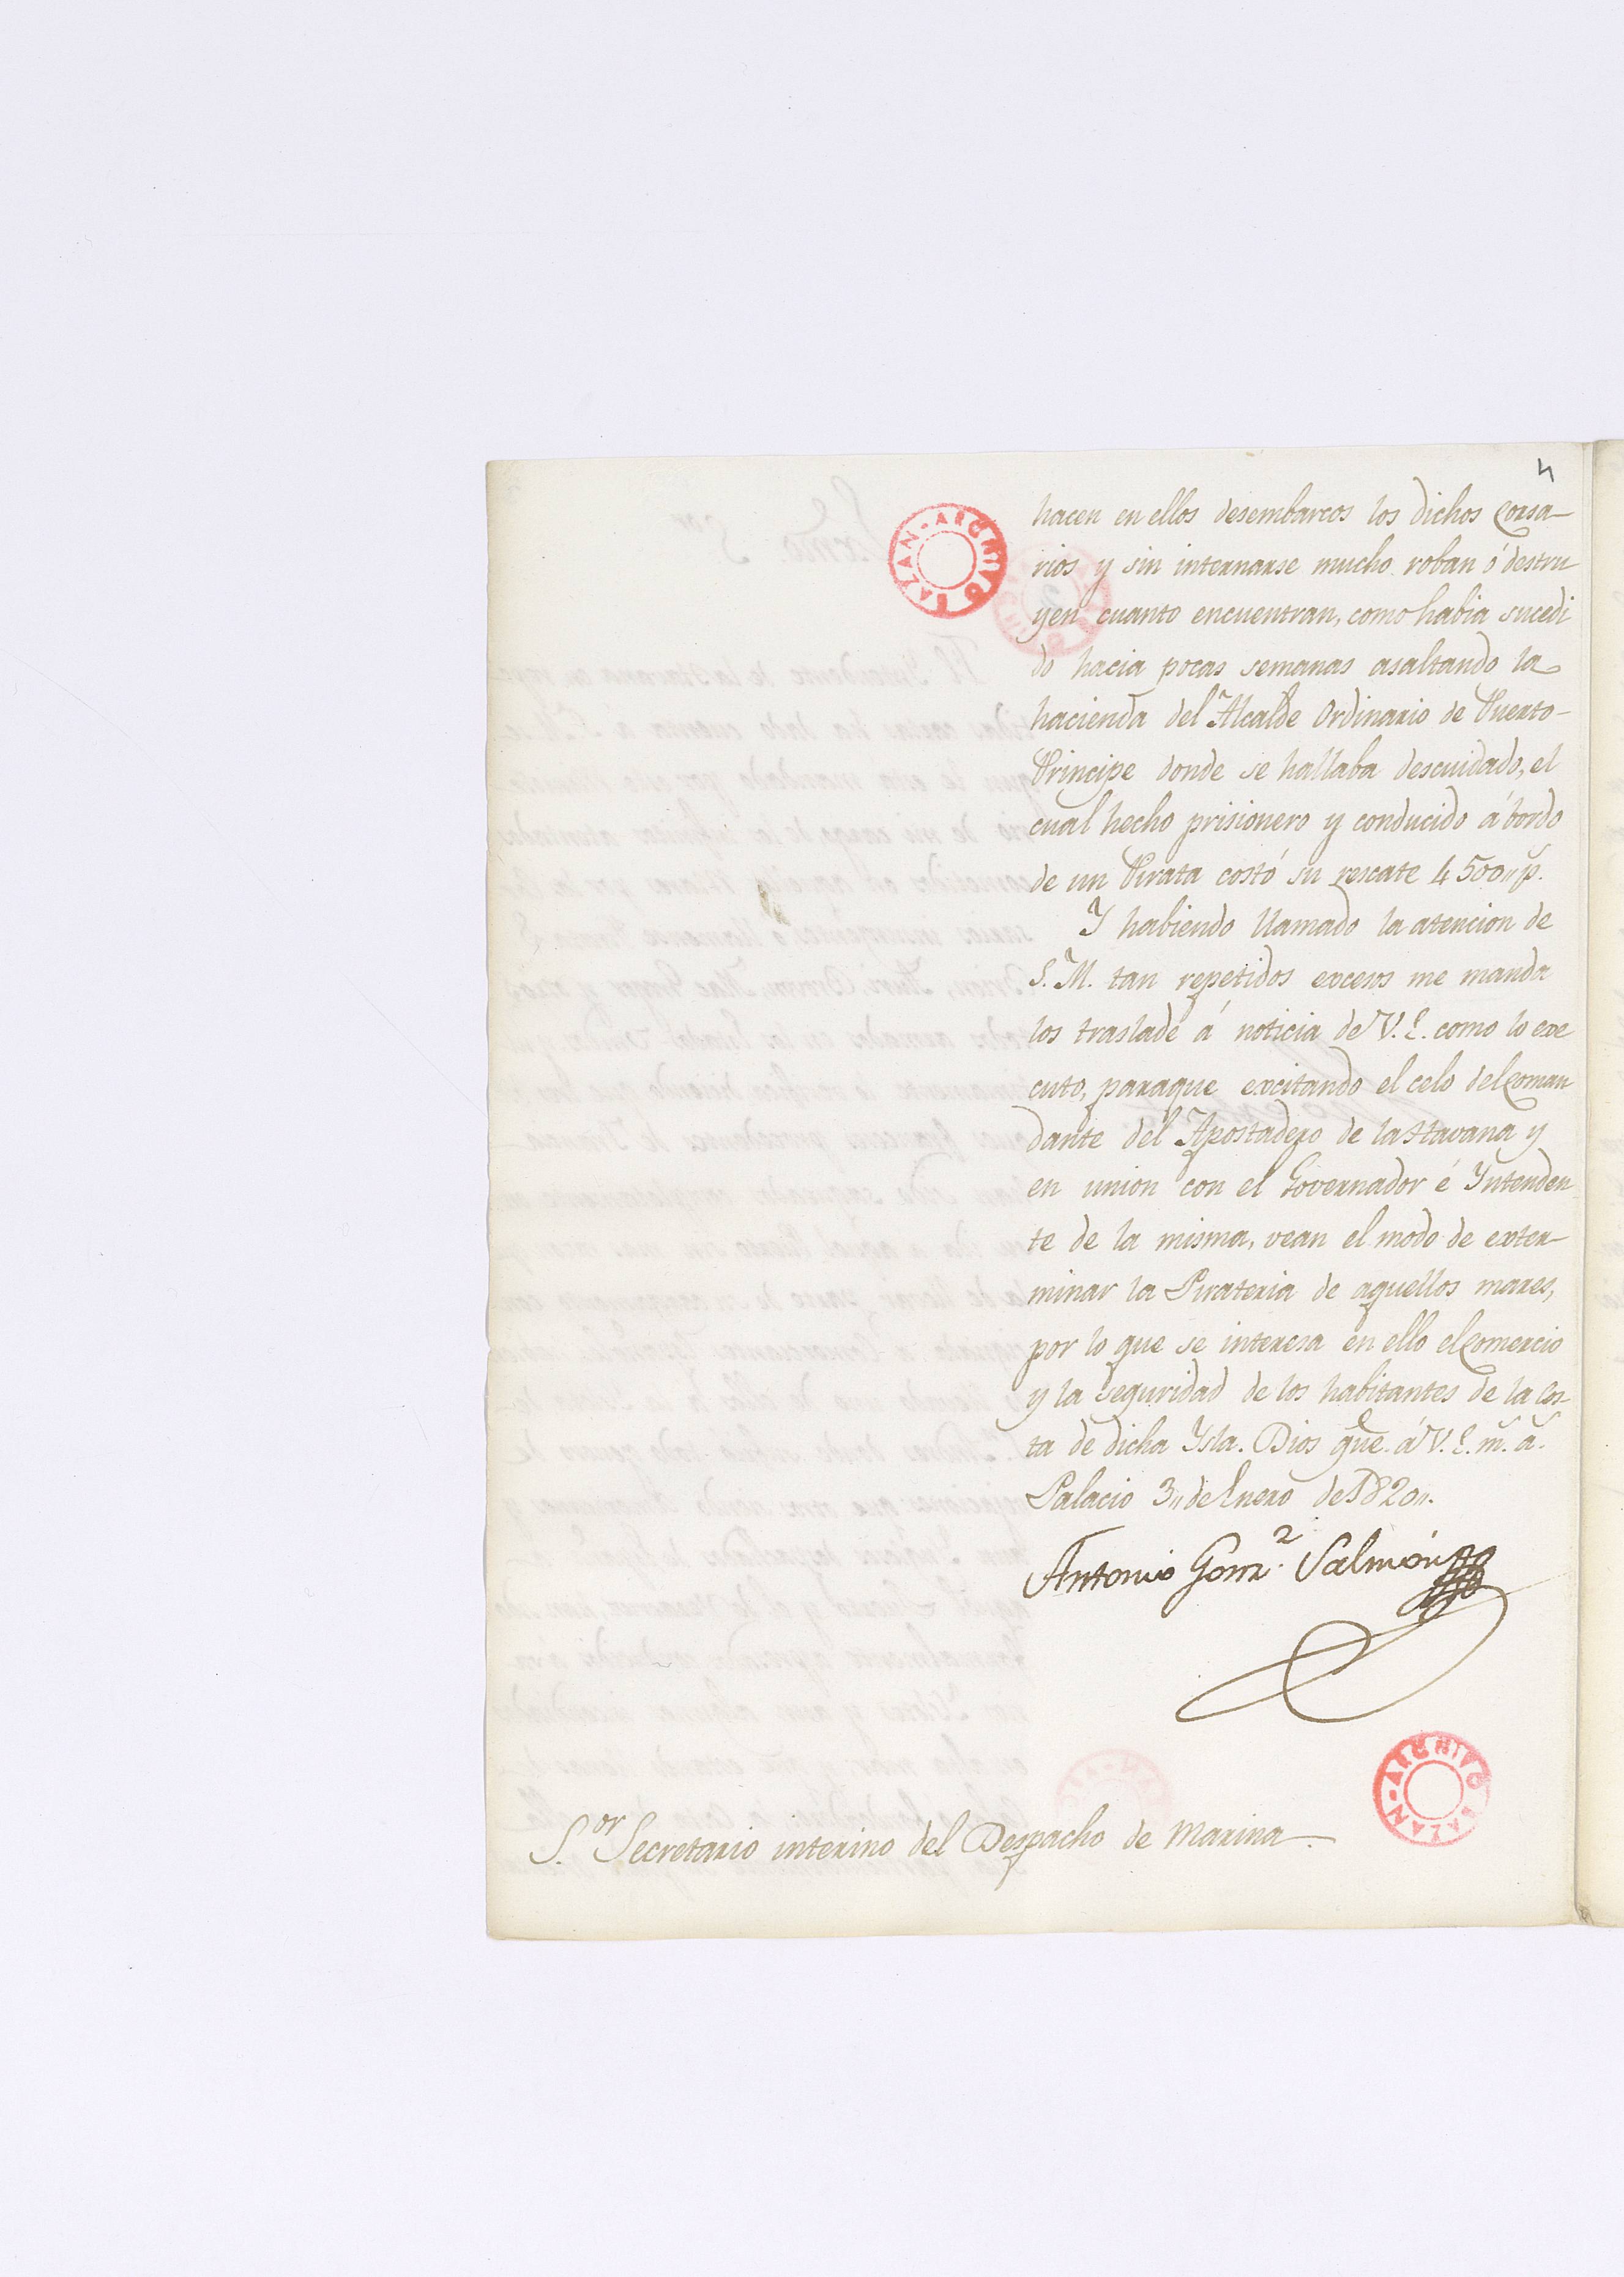 4
hacen en ellos desembarcos los dichos Corsa-
rios y sin internarse mucho roban ó destru
yen cuanto encuentran, como habia sucedi
do hacia pocas semanas asaltando la
hacienda del Alcalde Ordinario de Puerto-
Principe donde se hallaba descuidado, el
cual hecho prisionero y conducido á bordo
de un Pirata costó su rescate 4500,, p.s
Y habiendo llamado la atencion de
S. M. tan repetidos excesos me manda
los traslade á noticia de V. E. como lo exe
cuto, paraque excitando el celo del Coman
dante del Apostadero de la Havana y
en union con el Governador é Yntenden
te de la misma, vean el modo de exter-
minar la Pirateria de aquellos mares,
por lo que se interesa en ello el Comercio
y la seguridad de los habitantes de la Cos-
ta de dicha Ysla. Dios gue. á V. E. m.s a.s
Palacio 3,, de Enero de 1820,,.
Antonio Gonz.z Salmón
S.or Secretario interino del Despacho de Marina.
ARCHIVO BAZAN
ARCHIVO BAZAN